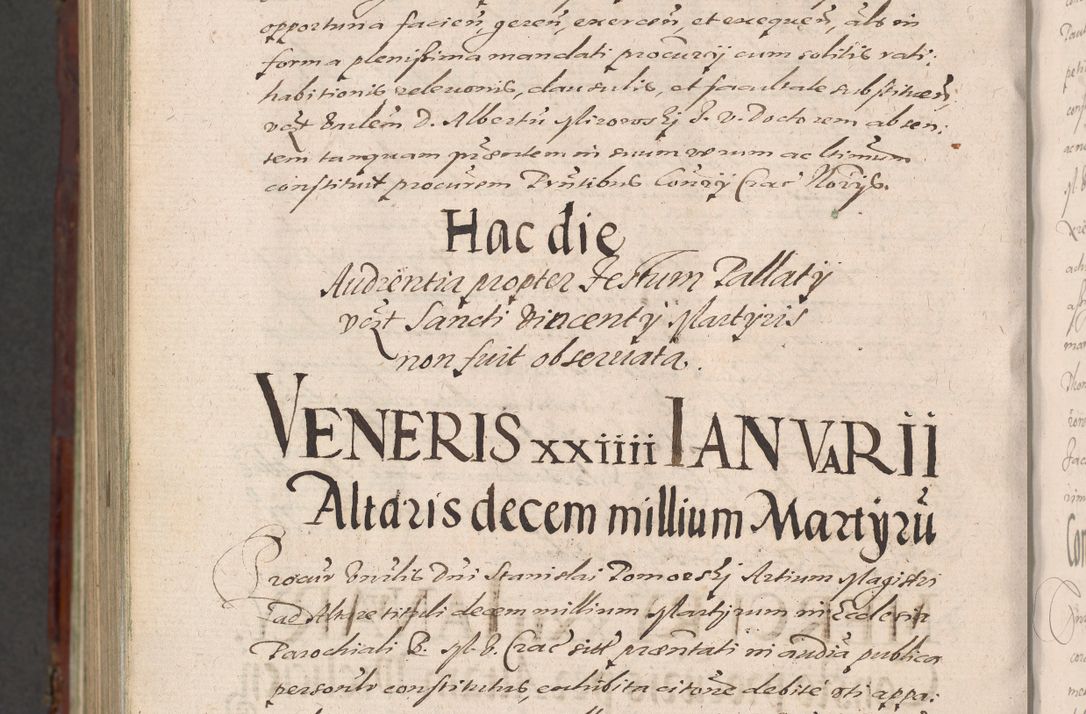 opportuna facień, gereń, exerceń, et exequeń, als in
forma plenissima mandati procurÿ cum solitis rati:
habitionis relevonis, clausulis, et facultate substitueń,
vɀt Ɛnrlem D. Albertū Mirowskj J. V. Doctorem absen:
tem tanquam prs̄entem in suum verum ac ltimum
constituit procūrem Prn̄tibus Coūrjj Crac̄ Notrÿs.
Hac die
Audientia propter Festum Pallatÿ
vɀt Sancti Vincentÿ Martÿris
non fuit observata.
VENERIS xxiiii IANVARII
Altaris decem millium Martÿrū
Procur̄ Ɛnrlis Dn̄i Stanislai Pomorskj Artium Magistri
ad Altare tituli decem millium Martÿrum in Ecclesia
Parochiali B. M. V. Crac̄ siti praesentati in audiā publica
personlr constitutus, exhibita citōne debite vti appa: